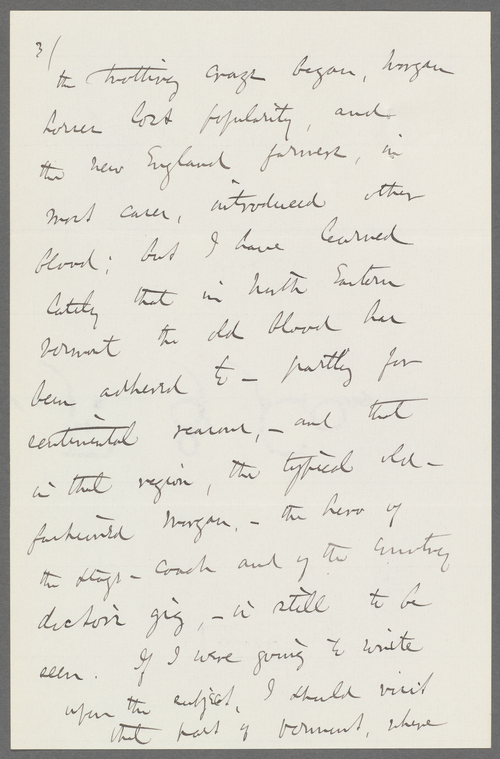 3/
the trotting craze began, Morgan
horses lost popularity, and
the new England farmers, in
most cases, introduced other
blood; but I have learned
lately that in North Eastern
Vermont the old blood has
been adhered to – partly for
sentimental reasons, – and that
in that region, the typical old-
fashioned Morgan, – the hero of
the stage-coach and of the country
doctor's gig, – is still to be
seen. If I were going to write
upon the subject, I should visit
that part of Vermont, where